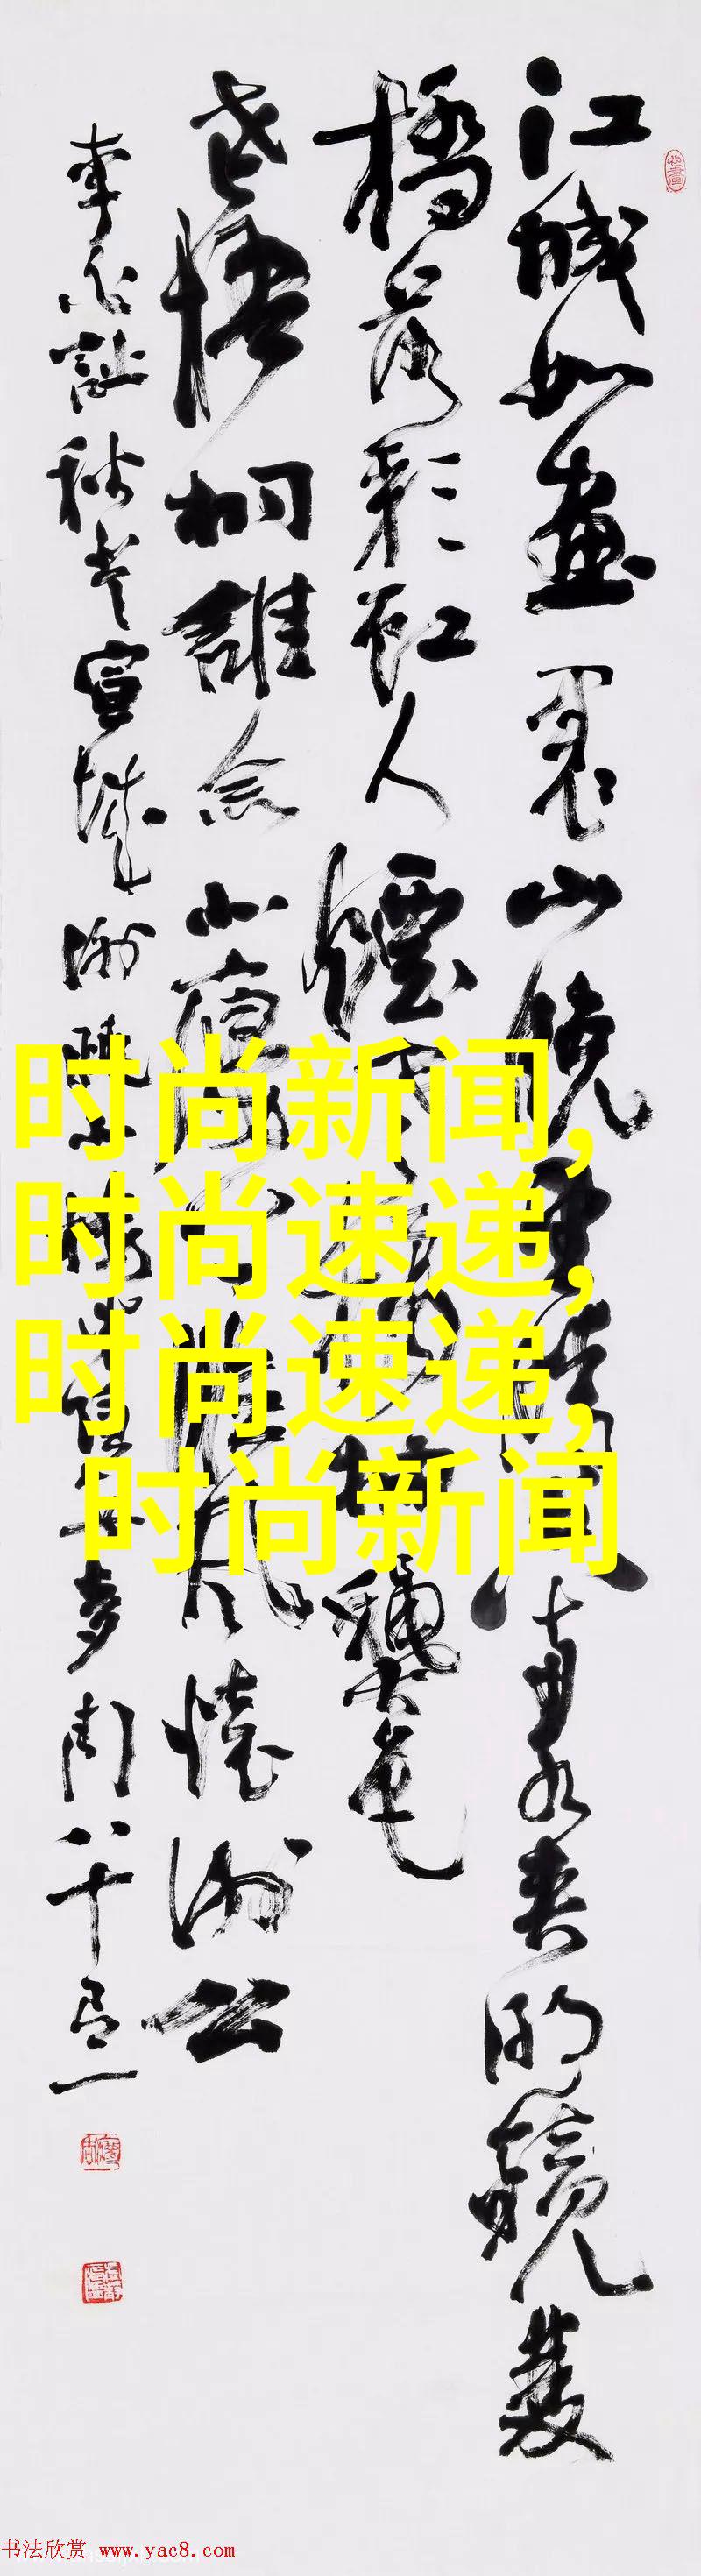 江城如畫裏山晚望晴空兩水夾明鏡雙
橋落彩虹人煙寒橘柚龝色
老梧桐誰念北樓上臨風懷謝公
李白詩秋登宣城謝朓北樓
时尚新闻,
时尚速递,
时尚速递,
时尚新闻
书法欣赏 www.yac8.com